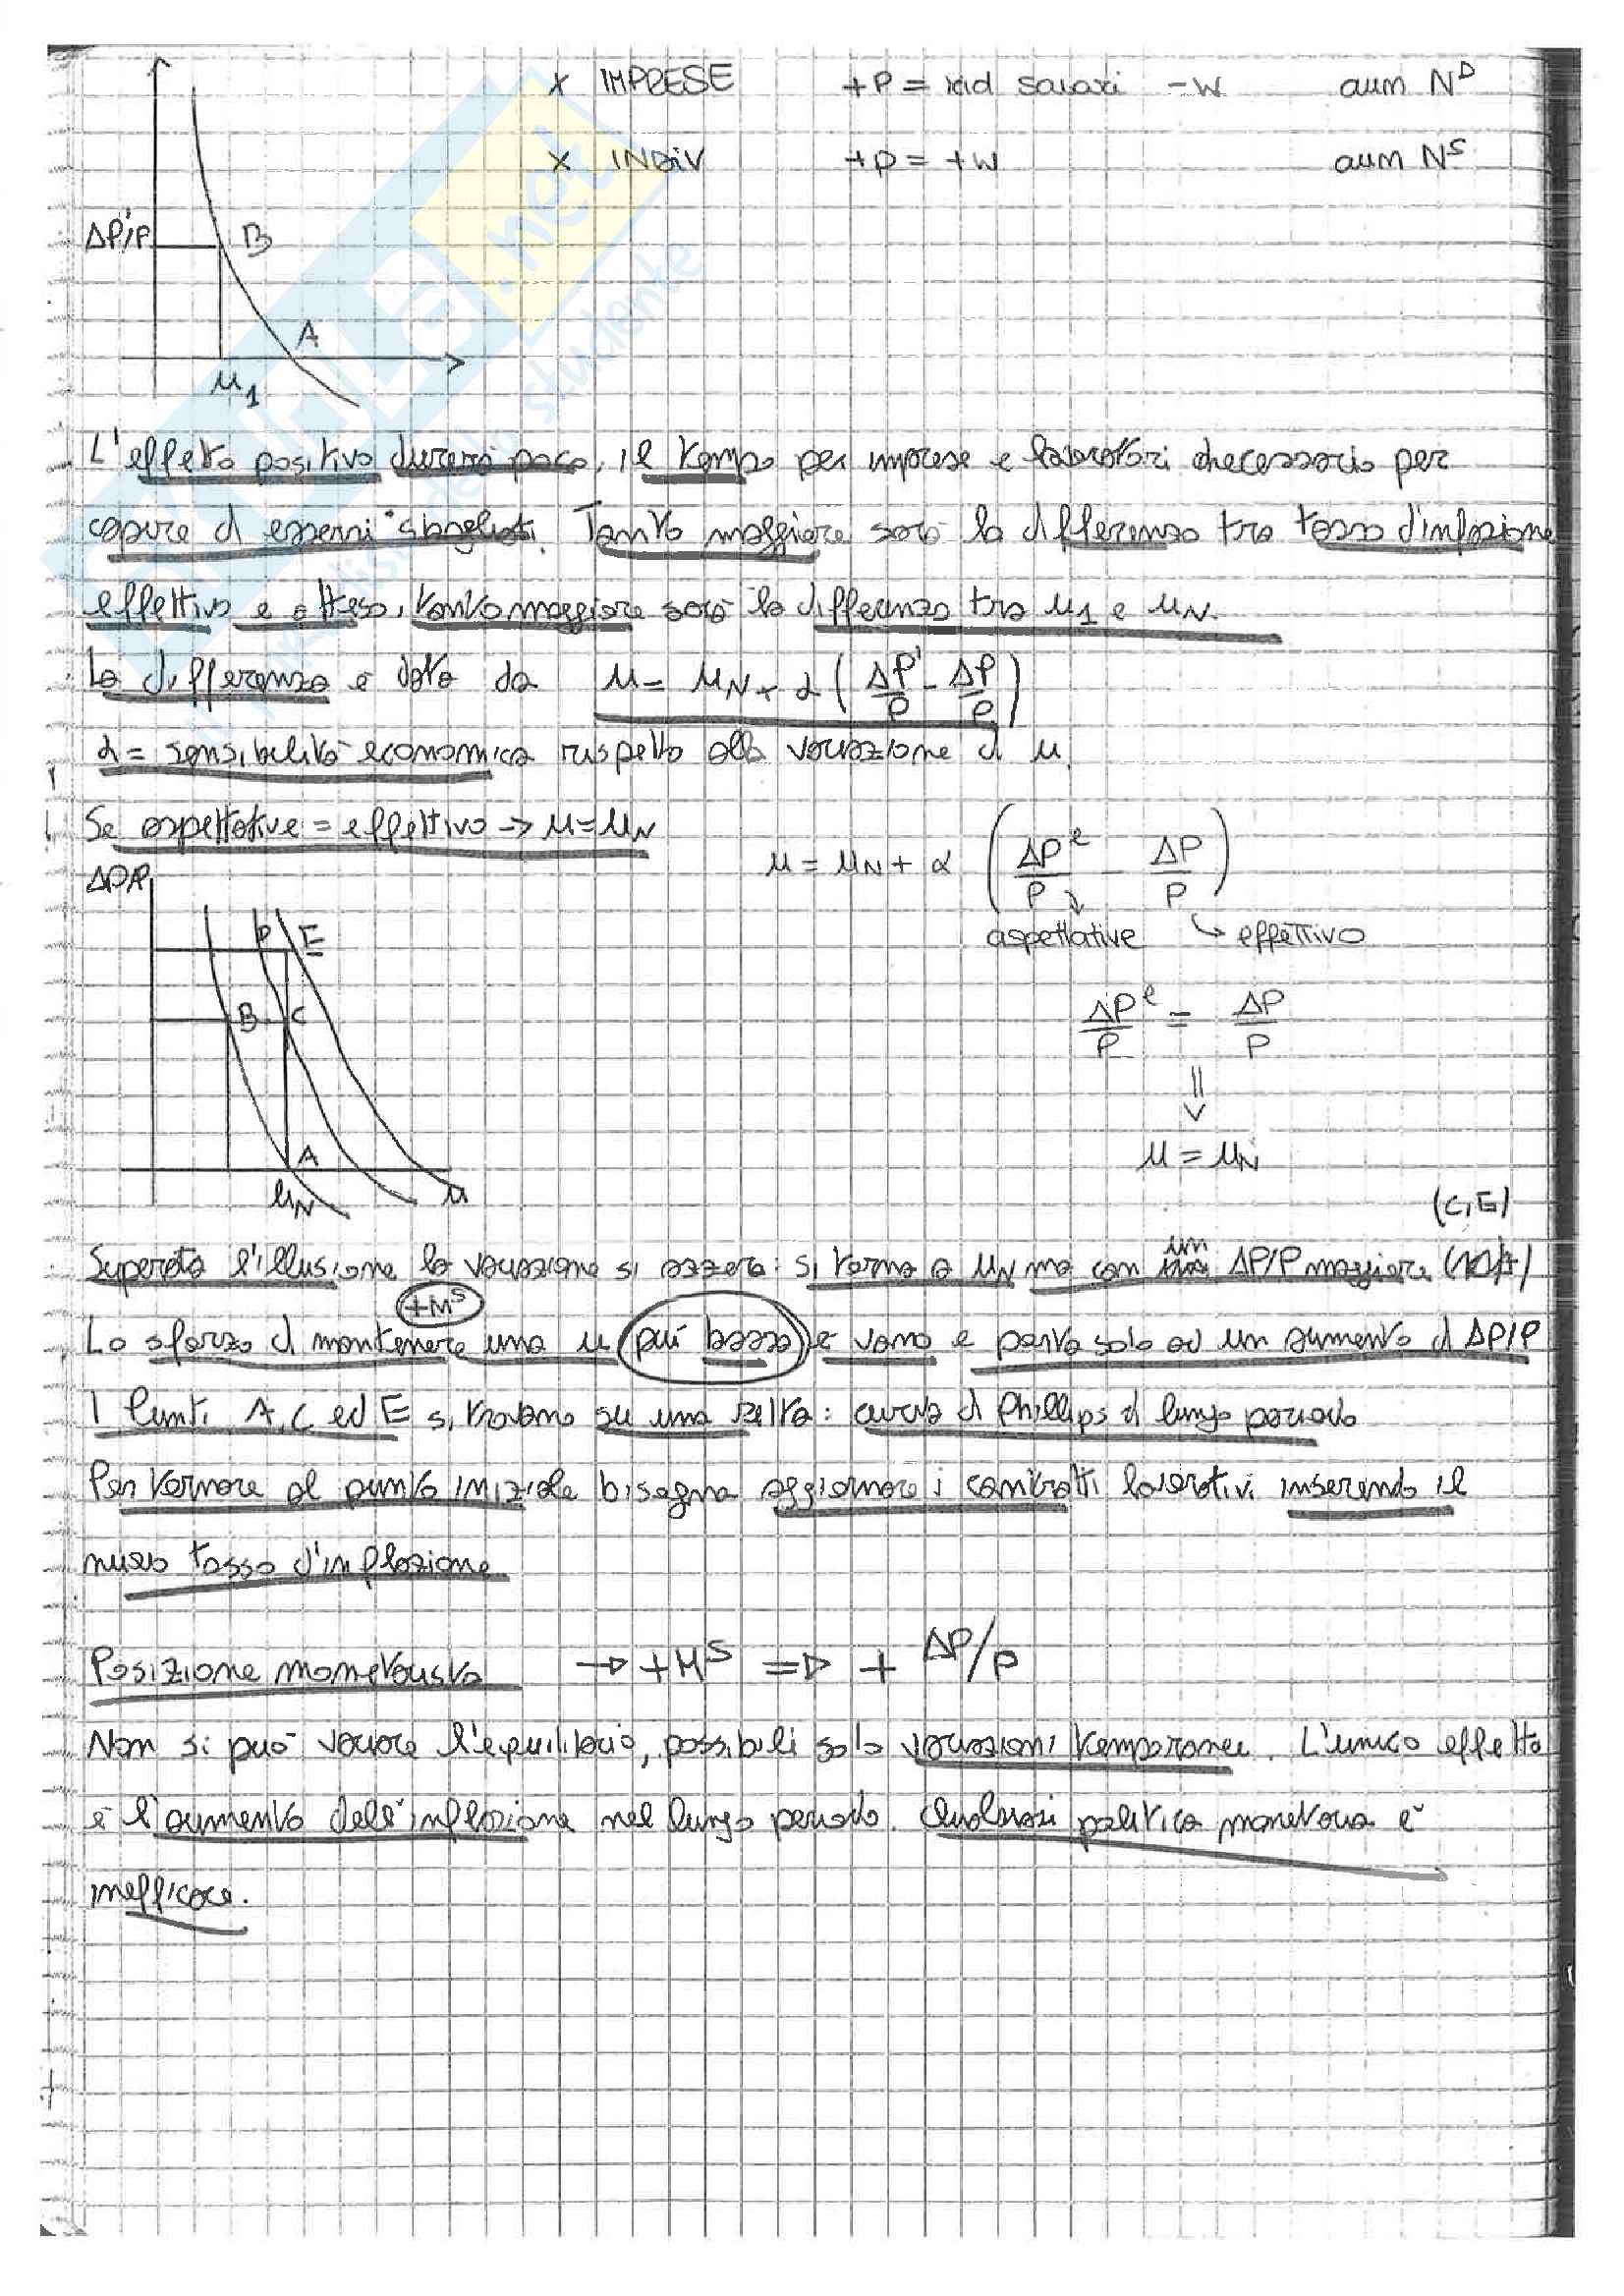 x IMPRESE +P = rid salari -W aum N^D
x INDIV +P = +W aum N^S
ΔP'/P B
A
u_1
L'effetto positivo durerà poco, il tempo per imprese e lavoratori necessario per
capire di essersi sbagliati. Tanto maggiore sarà la differenza tra tasso d'inflazione
effettivo e atteso, tanto maggiore sarà la differenza tra u_1 e u_N.
La differenza è data da u = u_N + α (ΔP'/P - ΔP/P)
α = sensibilità economica rispetto alla variazione di u.
Se aspettative = effettivo → u = u_N
u = u_N + α (ΔP^e/P - ΔP/P)
aspettative effettivo
ΔP/P
D E
B C
A
u_N u
ΔP^e/P = ΔP/P
⇓
u = u_N
(C,E)
Superata l'illusione la variazione si azzera: si torna a u_N ma con un ΔP/P maggiore
+M^S
Lo sforzo di mantenere una u più bassa è vano e porta solo ad un aumento di ΔP/P
I punti A, C ed E si trovano su una retta: curva di Phillips di lungo periodo
Per tornare al punto iniziale bisogna aggiornare i contratti lavorativi inserendo il
nuovo tasso d'inflazione
Posizione monetarista → +M^S => + ΔP/P
Non si può variare l'equilibrio, possibili solo variazioni temporanee. L'unico effetto
è l'aumento dell'inflazione nel lungo periodo. Qualsiasi politica monetaria è
inefficace.